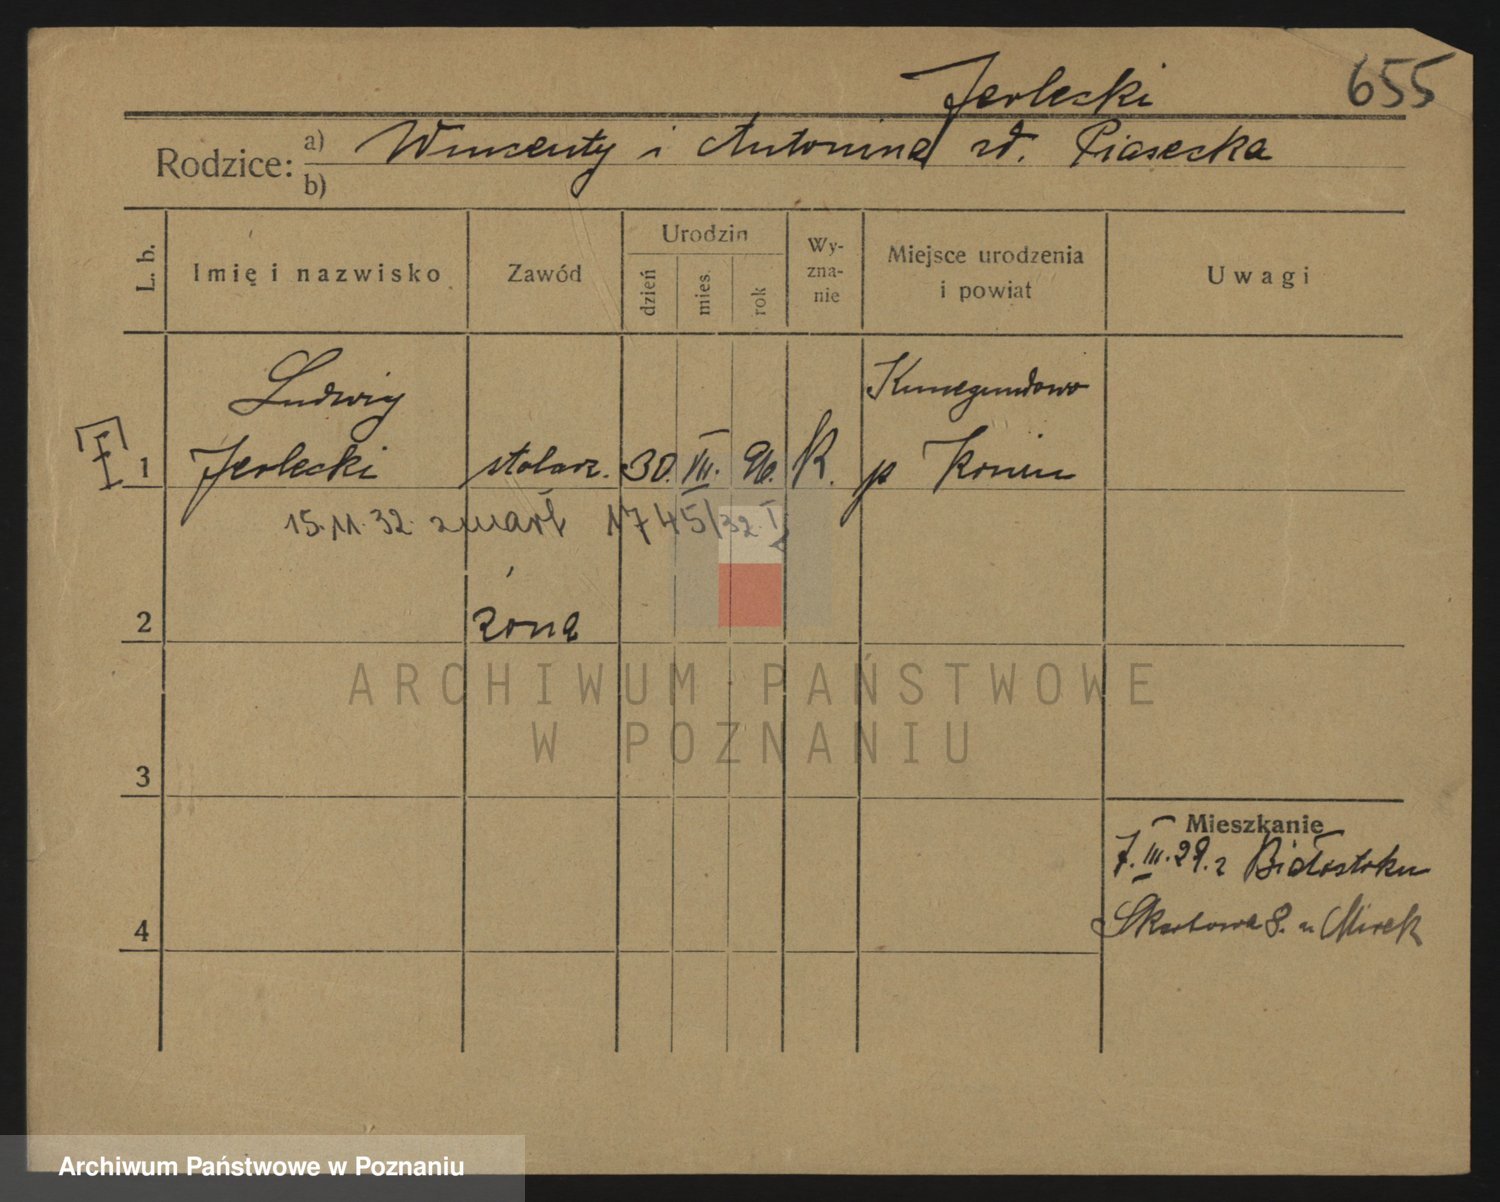 Jerlecki
655
Rodzice: a) Wincenty i Antonina zd. Piasecka
b)
L. b.
Imię i nazwisko
Zawód
Urodzin
dzień
mies.
rok
Wy-
zna-
nie
Miejsce urodzenia
i powiat
Uwagi
Ludwig
Kunegundowo
1 Jerlecki stolarz. 30. III. 96. K. p Konin
15.11.32. zmarł 1745/32.
2 żona
ARCHIWUM PAŃSTWOWE
W POZNANIU
3
Mieszkanie
7.III.29. z Białostoku
4
Skarbowa 8. u Mirek
Archiwum Państwowe w Poznaniu